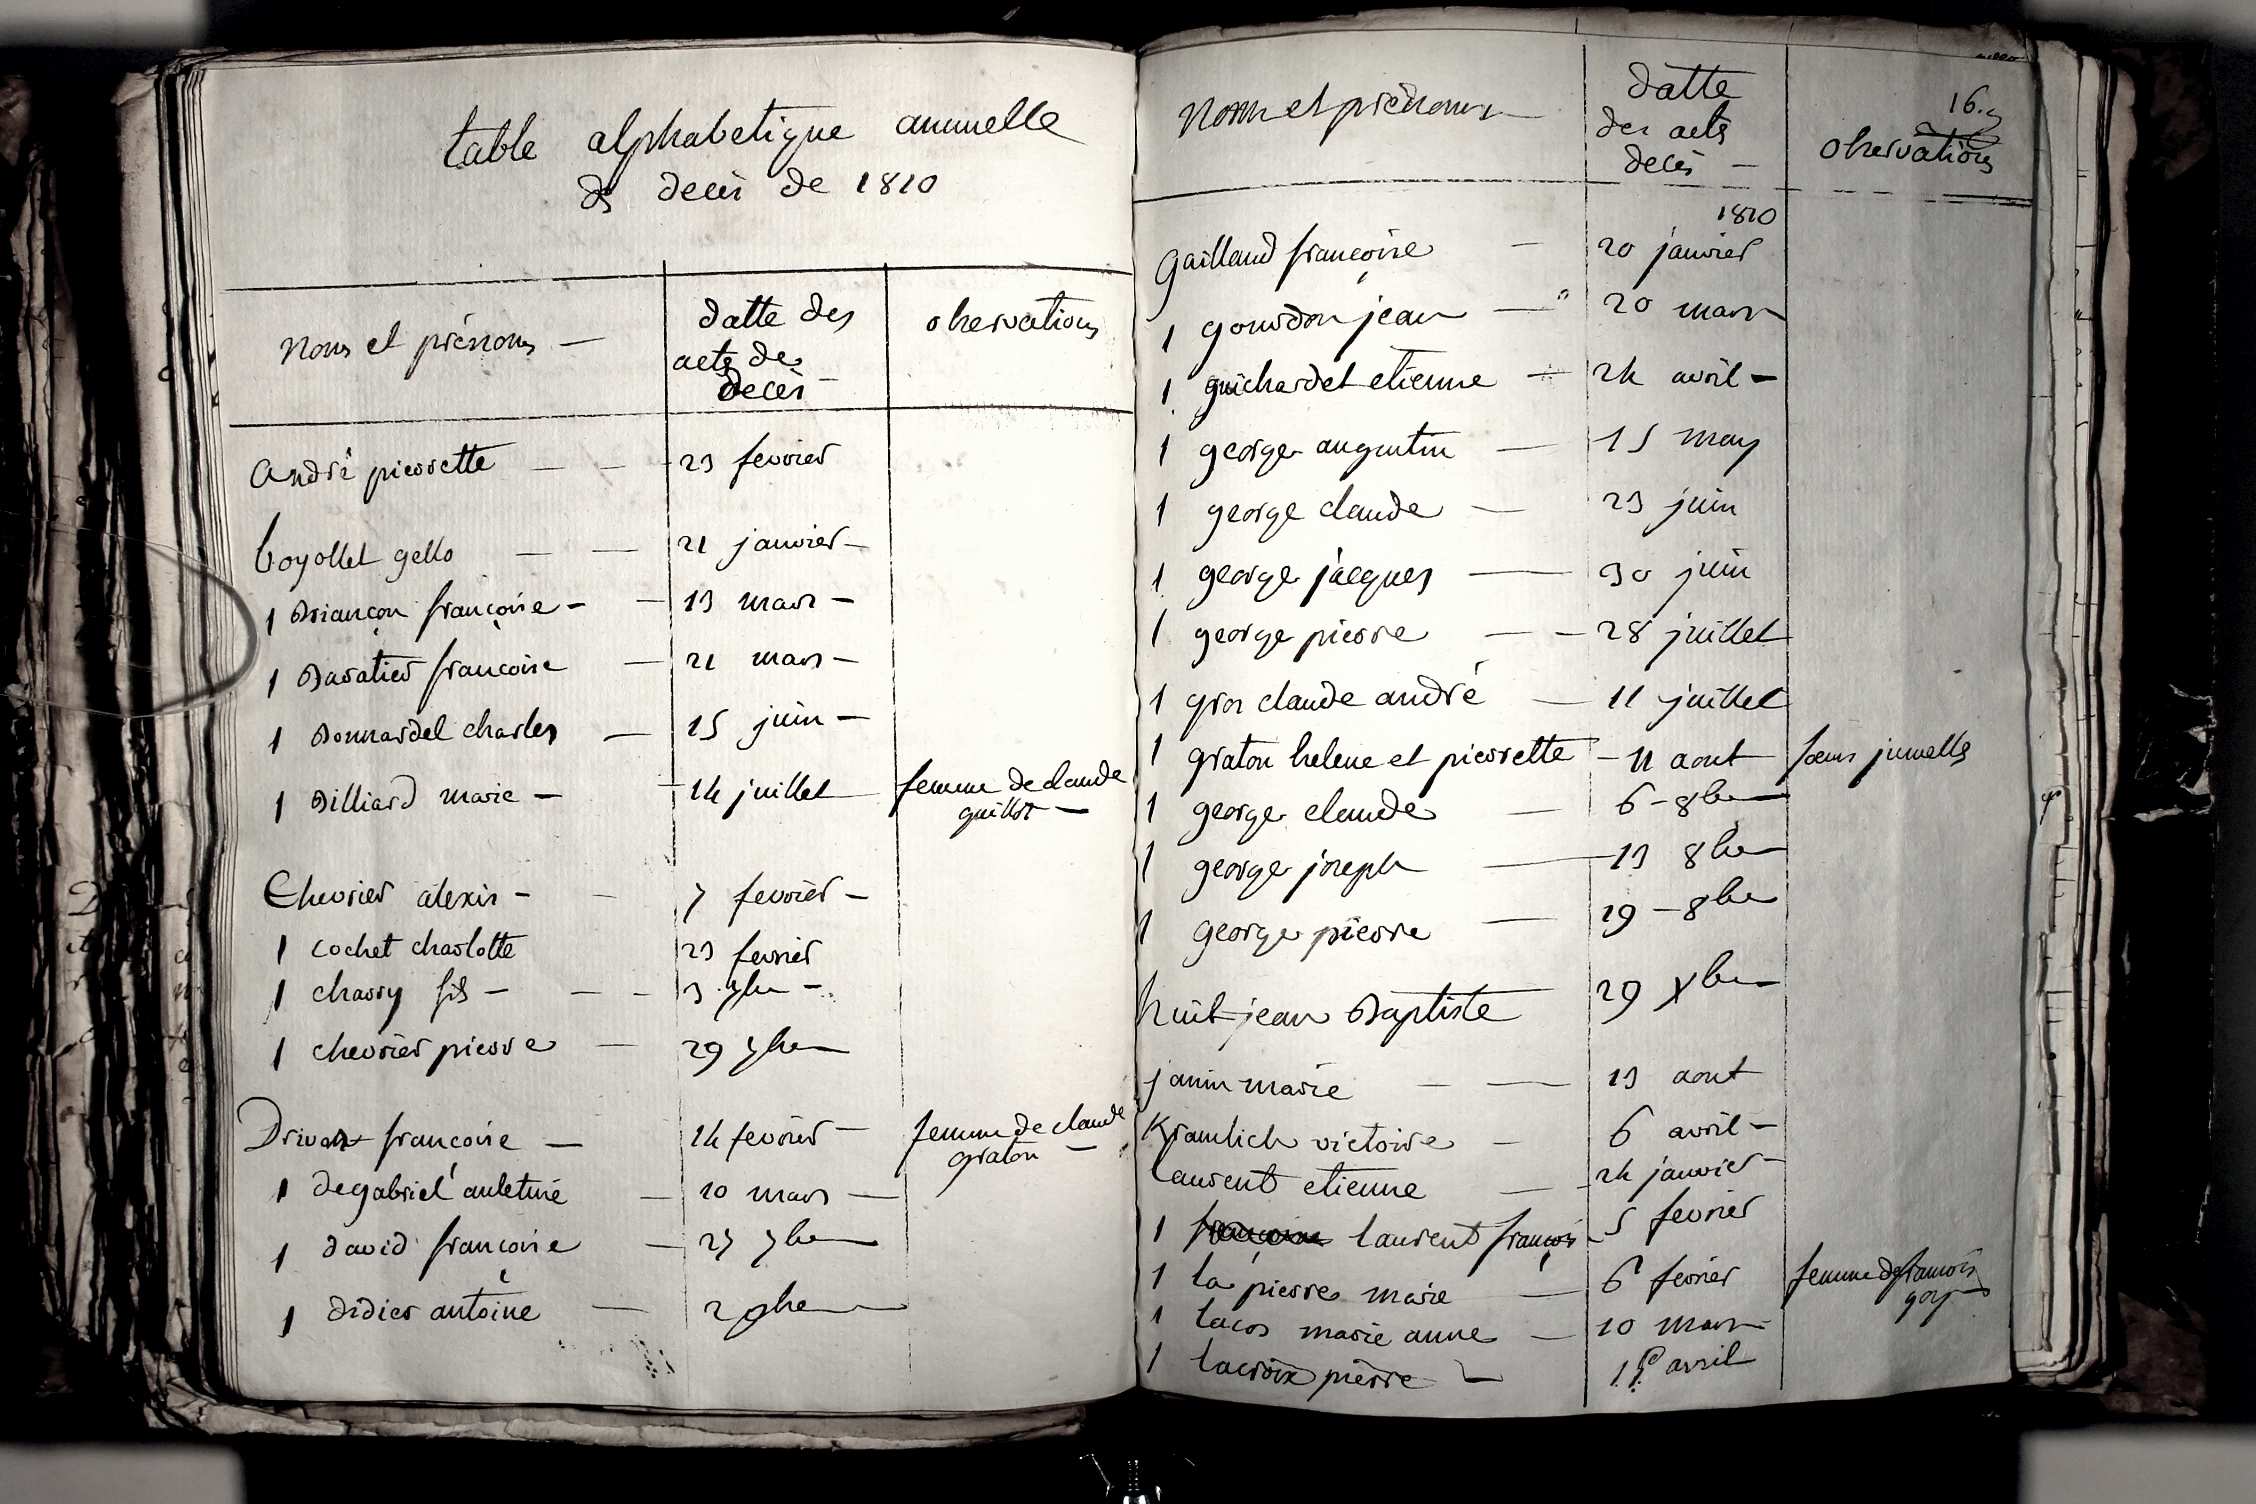 table alphabetique annuelle
ds decès de 1810
Noms et prénoms —
datte des
acts de
decès
observations
andré pierrette — — — 23 fevrier
boyollet gello — — 21 janvier —
1 Briançon françoise — — 13 mars —
1 Baratier françoise — 21 mars —
1 Bonnardel charles — 15 juin —
1 Billiard marie — 14 juillet femme de claude
guillot —
Chevrier alexis — — 7 fevrier —
1 cochet charlotte 23 fevrier
1 chassy fils — — — 3 7bre —
1 chevrier pierre — 29 7bre
Drivon françoise — 14 fevrier — femme de claude
graton —
1 degabriel — 10 mars —
1 david françoise — 27 7bre
1 didier antoine — 2 9bre
Noms et prénoms —
datte
des acts
decès —
16.
observations
1810
Gaillaud françoise — 20 janvier
1 gourdon jean — 20 mars
1 guichardet etienne — 24 avril —
1 george augustin — 15 may
1 george claude — 23 juin
1 george jacques — 30 juin
1 george pierre — — 28 juillet
1 gros claude andré — 11 juillet
1 graton helene et pierrette — 11 aout sœurs jumelles
1 george claude — 6 — 8bre
1 george joseph — 13 8bre
1 george pierre — 29 — 8bre
huit jean Baptiste 29 Xbre
janin marie — — 13 aout
Kramlich victoire — 6 avril —
laurent etienne — 24 janvier —
1 laurent françois 5 fevrier
1 la pierre marie — 6 fevrier femme de françois
goy
1 lacos marie anne — 10 mars
1 lacroix pierre — avril